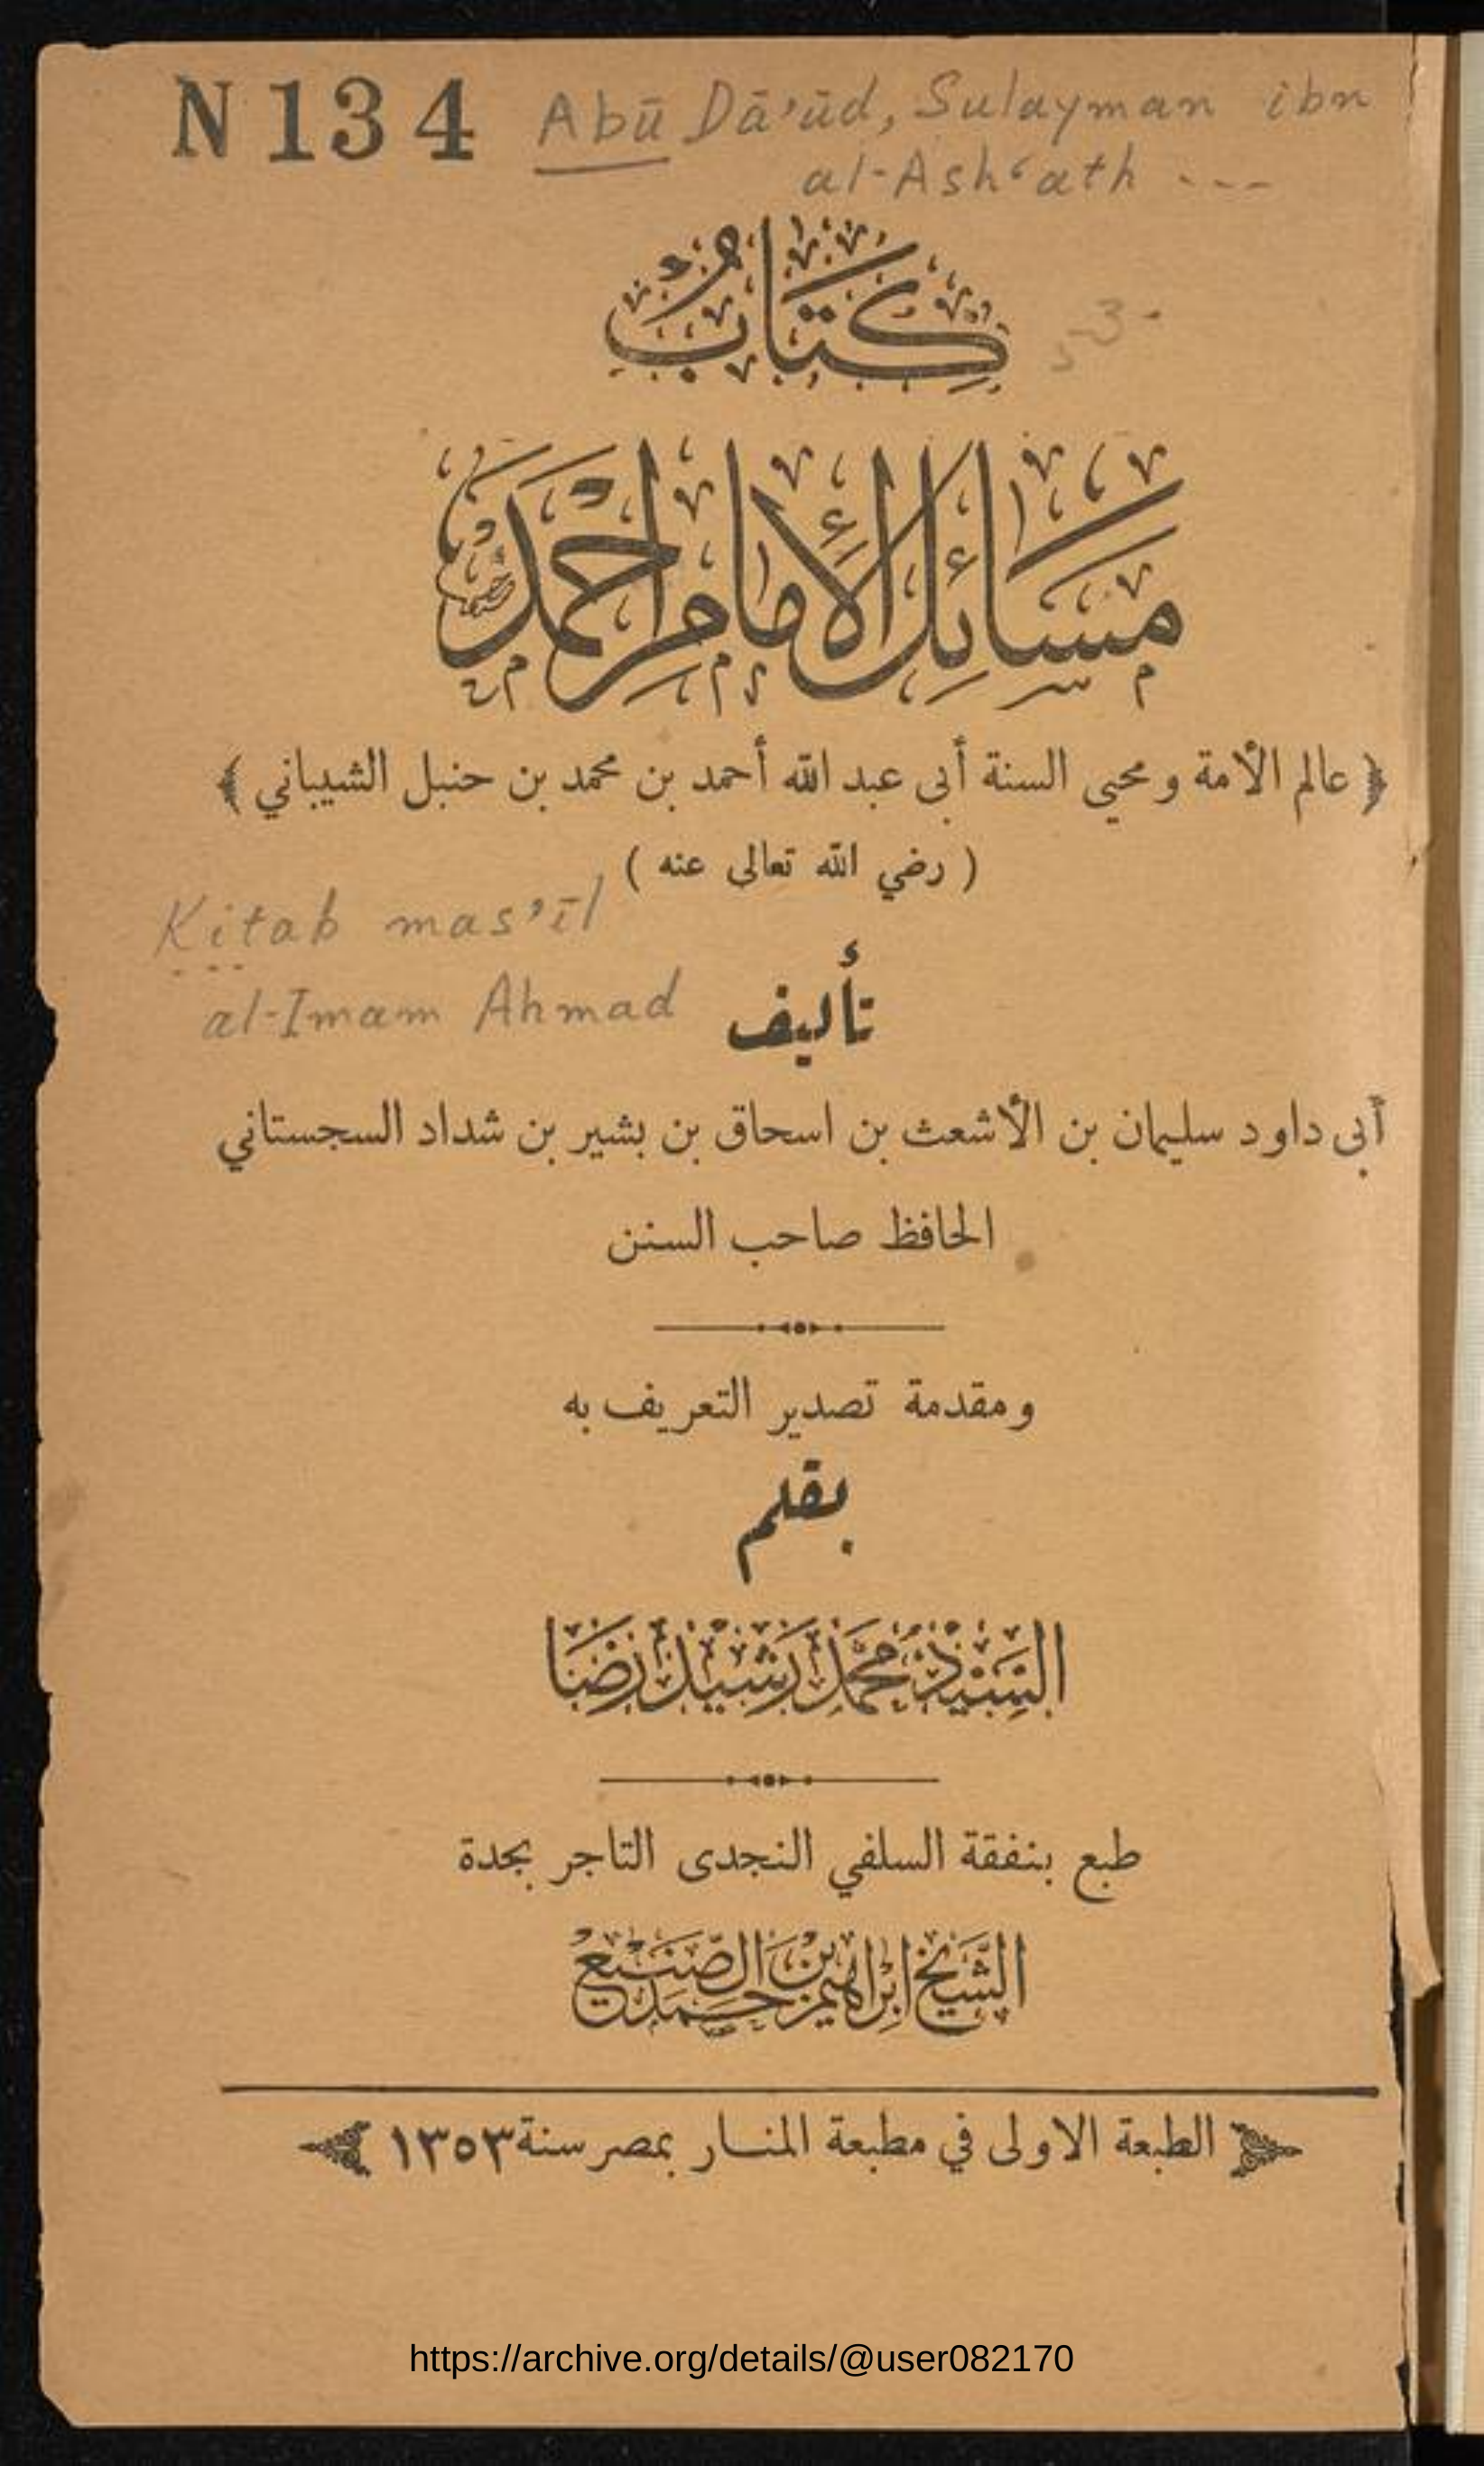 N 134 Abū Dā'ūd, Sulayman ibn
al-Ash‘ath ---
كِتَابُ
مَسَائِلِ الإِمَامِ أَحْمَدَ
﴿ عالم الأمة ومحيى السنة أبى عبد الله أحمد بن محمد بن حنبل الشيبانى ﴾
( رضي الله تعالى عنه )
Kitab mas'īl
al-Imam Ahmad
تأليف
أبى داود سليمان بن الأشعث بن اسحاق بن بشير بن شداد السجستاني
الحافظ صاحب السنن
ومقدمة تصدير التعريف به
بقلم
السَّيِّد مُحَمَّد رَشِيد رِضَا
طبع بنفقة السلفي النجدى التاجر بجدة
الشَّيْخ ابْرَاهِيم بْن حَمَد الصَّنِيع
الطبعة الاولى في مطبعة المنار بمصر سنة ١٣٥٣
https://archive.org/details/@user082170